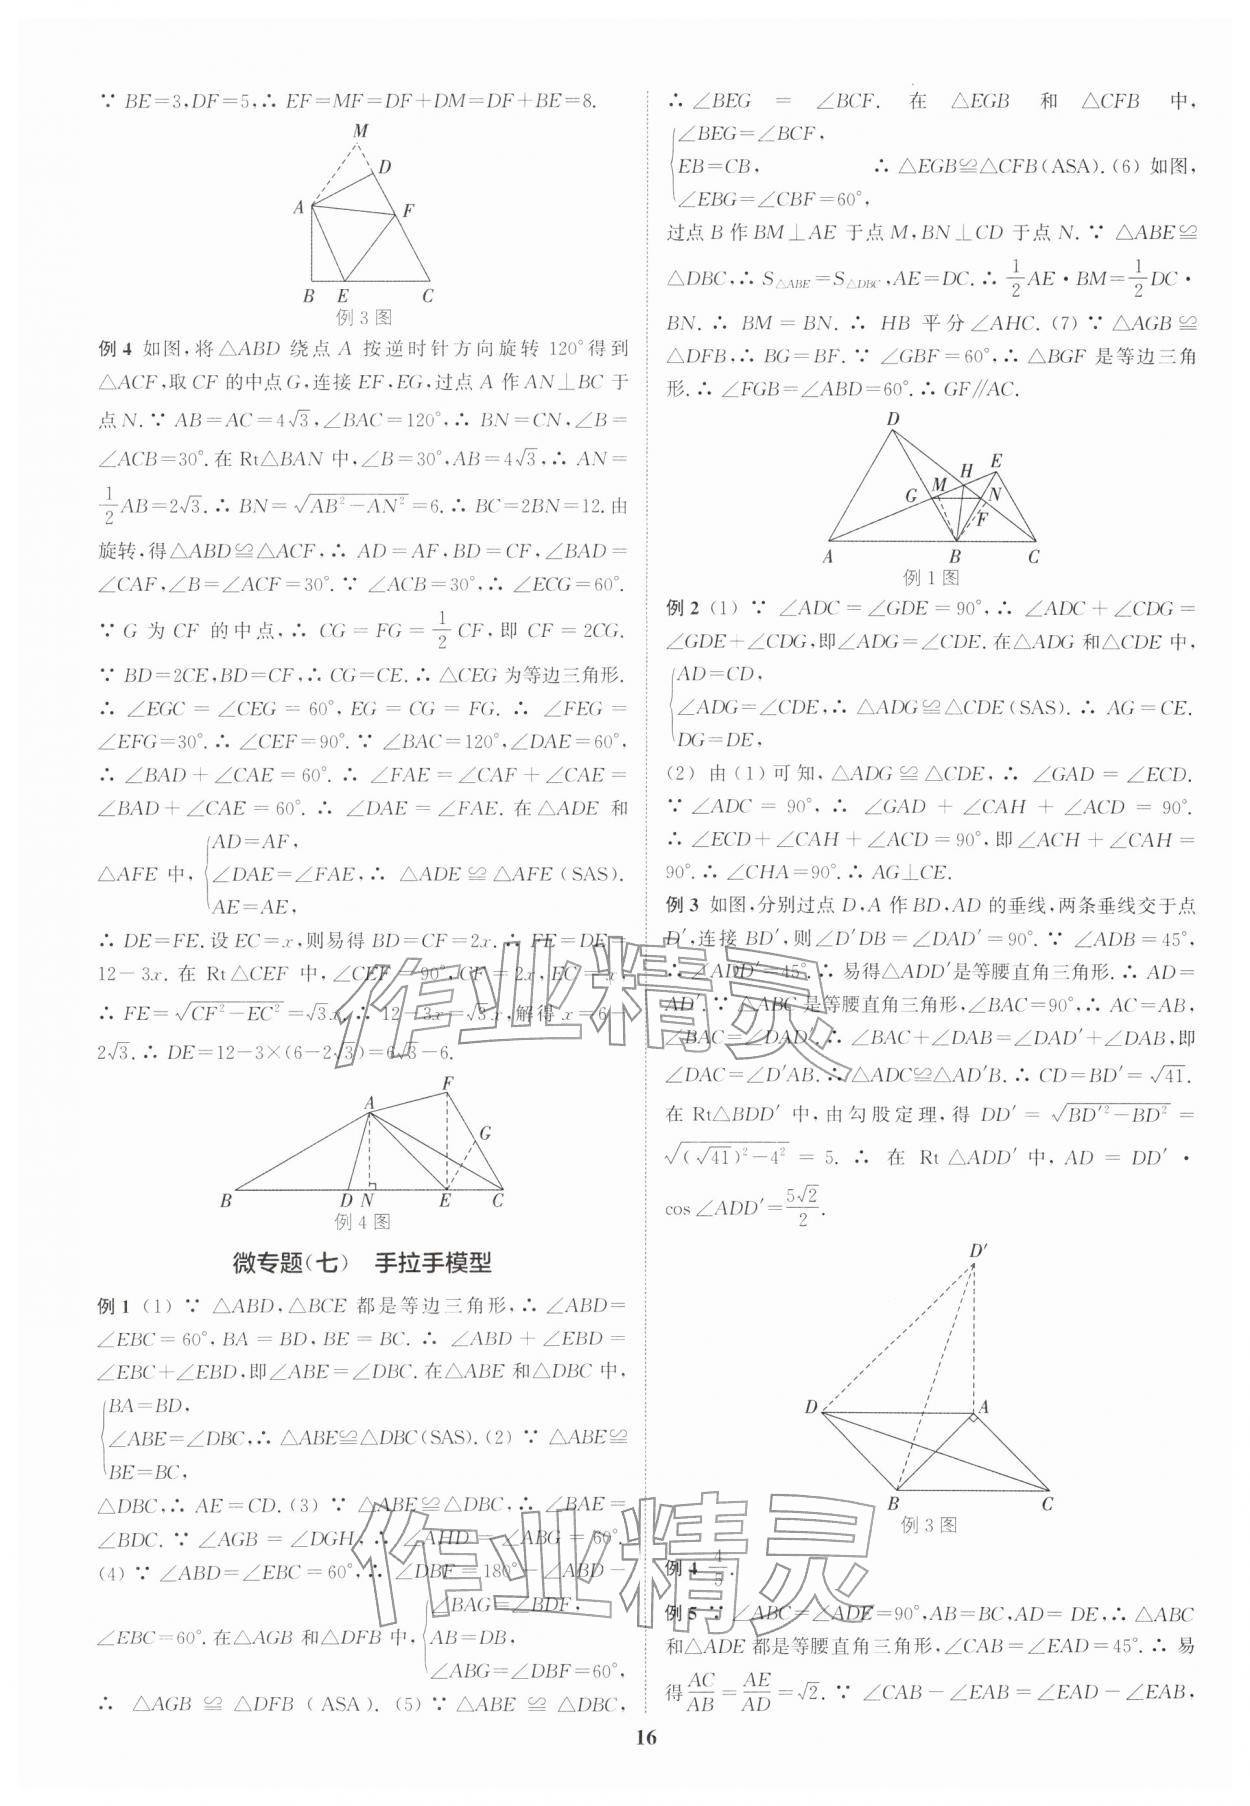 ∵ BE=3,DF=5,∴ EF=MF=DF+DM=DF+BE=8.
M
D
A
F
B E C
例 3 图
例 4 如图,将△ABD 绕点 A 按逆时针方向旋转 120°得到
△ACF,取 CF 的中点 G,连接 EF,EG,过点 A 作 AN⊥BC 于
点 N. ∵ AB=AC=4√3,∠BAC=120°,∴ BN=CN,∠B=
∠ACB=30°. 在 Rt△BAN 中,∠B=30°,AB=4√3,∴ AN=
1/2 AB=2√3. ∴ BN=√(AB²-AN²)=6. ∴ BC=2BN=12. 由
旋转,得△ABD≌△ACF,∴ AD=AF,BD=CF,∠BAD=
∠CAF,∠B=∠ACF=30°. ∵ ∠ACB=30°,∴ ∠ECG=60°.
∵ G 为 CF 的中点,∴ CG=FG=1/2 CF,即 CF=2CG.
∵ BD=2CE,BD=CF,∴ CG=CE. ∴ △CEG 为等边三角形.
∴ ∠EGC=∠CEG=60°,EG=CG=FG. ∴ ∠FEG=
∠EFG=30°. ∴ ∠CEF=90°. ∵ ∠BAC=120°,∠DAE=60°,
∴ ∠BAD+∠CAE=60°. ∴ ∠FAE=∠CAF+∠CAE=
∠BAD+∠CAE=60°. ∴ ∠DAE=∠FAE. 在△ADE 和
AD=AF,
△AFE 中, ∠DAE=∠FAE, ∴ △ADE≌△AFE(SAS).
AE=AE,
∴ DE=FE. 设 EC=x,则易得 BD=CF=2x. ∴ FE=DE=
12-3x. 在 Rt△CEF 中,∠CEF=90°,CF=2x,EC=x,
∴ FE=√(CF²-EC²)=√3x. ∴ 12-3x=√3x,解得 x=6-
2√3. ∴ DE=12-3×(6-2√3)=6√3-6.
F
A
G
B D N E C
例 4 图
微专题(七) 手拉手模型
例 1 (1) ∵ △ABD,△BCE 都是等边三角形,∴ ∠ABD=
∠EBC=60°,BA=BD,BE=BC. ∴ ∠ABD+∠EBD=
∠EBC+∠EBD,即∠ABE=∠DBC. 在△ABE 和△DBC 中,
BA=BD,
∠ABE=∠DBC, ∴ △ABE≌△DBC(SAS). (2) ∵ △ABE≌
BE=BC,
△DBC,∴ AE=CD. (3) ∵ △ABE≌△DBC,∴ ∠BAE=
∠BDC. ∵ ∠AGB=∠DGH,∴ ∠AHD=∠ABG=60°.
(4) ∵ ∠ABD=∠EBC=60°,∴ ∠DBF=180°-∠ABD-
∠BAG=∠BDF,
∠EBC=60°. 在△AGB 和△DFB 中, AB=DB,
∠ABG=∠DBF=60°,
∴ △AGB≌△DFB(ASA). (5) ∵ △ABE≌△DBC,
∴ ∠BEG=∠BCF. 在 △EGB 和 △CFB 中,
∠BEG=∠BCF,
EB=CB, ∴ △EGB≌△CFB(ASA). (6) 如图,
∠EBG=∠CBF=60°,
过点 B 作 BM⊥AE 于点 M,BN⊥CD 于点 N. ∵ △ABE≌
△DBC,∴ S△ABE=S△DBC,AE=DC. ∴ 1/2 AE·BM=1/2 DC·
BN. ∴ BM=BN. ∴ HB 平分∠AHC. (7) ∵ △AGB≌
△DFB,∴ BG=BF. ∵ ∠GBF=60°,∴ △BGF 是等边三角
形. ∴ ∠FGB=∠ABD=60°. ∴ GF∥AC.
D
H E
G M N
F
A B C
例 1 图
例 2 (1) ∵ ∠ADC=∠GDE=90°,∴ ∠ADC+∠CDG=
∠GDE+∠CDG,即∠ADG=∠CDE. 在△ADG 和△CDE 中,
AD=CD,
∠ADG=∠CDE, ∴ △ADG≌△CDE(SAS). ∴ AG=CE.
DG=DE,
(2) 由(1)可知,△ADG≌△CDE,∴ ∠GAD=∠ECD.
∵ ∠ADC=90°,∴ ∠GAD+∠CAH+∠ACD=90°.
∴ ∠ECD+∠CAH+∠ACD=90°,即∠ACH+∠CAH=
90°. ∴ ∠CHA=90°. ∴ AG⊥CE.
例 3 如图,分别过点 D,A 作 BD,AD 的垂线,两条垂线交于点
D′,连接 BD′,则∠D′DB=∠DAD′=90°. ∵ ∠ADB=45°,
∴ ∠ADD′=45°. ∴ 易得△ADD′是等腰直角三角形. ∴ AD=
AD′. ∵ △ABC 是等腰直角三角形,∠BAC=90°,∴ AC=AB,
∠BAC=∠DAD′. ∴ ∠BAC+∠DAB=∠DAD′+∠DAB,即
∠DAC=∠D′AB. ∴ △ADC≌△AD′B. ∴ CD=BD′=√41.
在 Rt△BDD′ 中,由勾股定理,得 DD′=√(BD′²-BD²)=
√((√41)²-4²)=5. ∴ 在 Rt△ADD′中,AD=DD′·
cos∠ADD′=5√2/2.
D′
D A
B C
例 3 图
例 4 4/5.
例 5 ∵ ∠ABC=∠ADE=90°,AB=BC,AD=DE,∴ △ABC
和△ADE 都是等腰直角三角形,∠CAB=∠EAD=45°. ∴ 易
得 AC/AB=AE/AD=√2. ∵ ∠CAB-∠EAB=∠EAD-∠EAB,
16
作业精灵
作业精灵